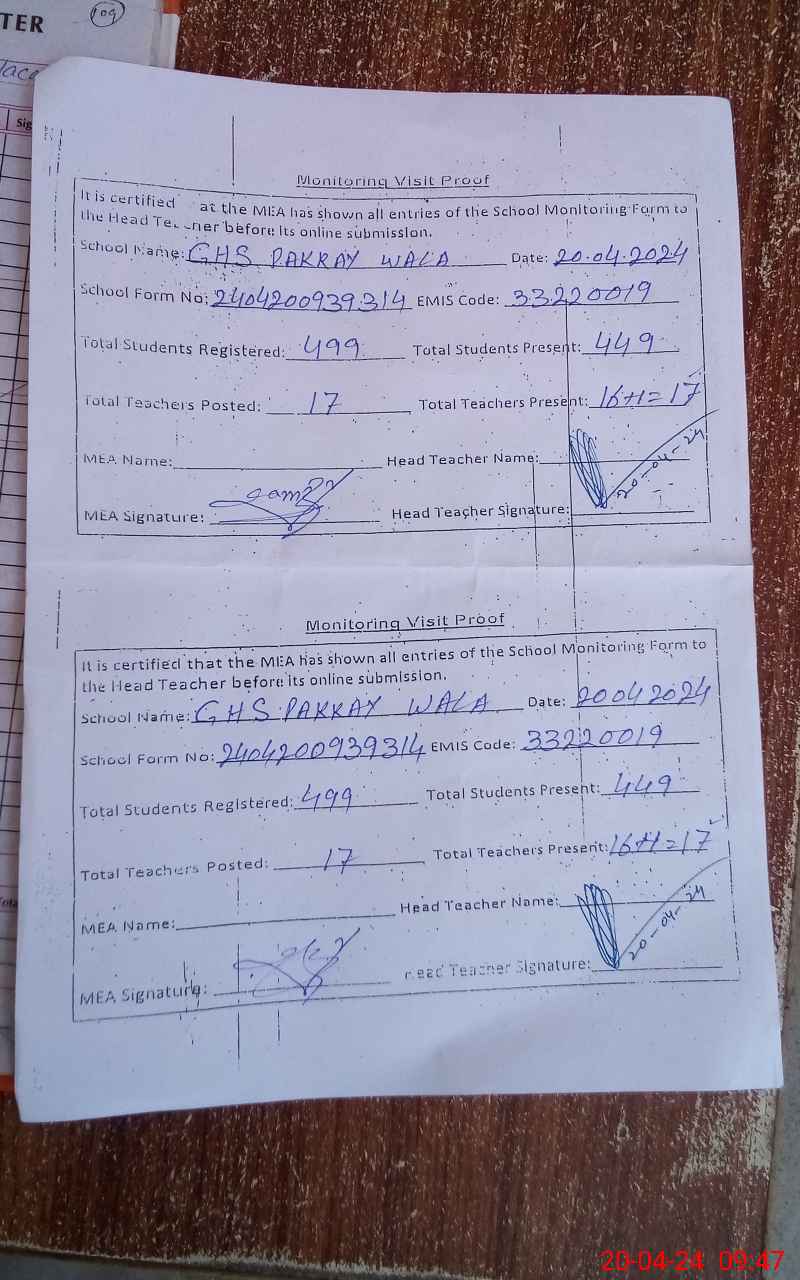 TER
109
Sig
Monitoring Visit Proof
It is certified at the MEA has shown all entries of the School Monitoring Form to
the Head Te ner before its online submission.
School Name: GHS PAKRAY WALA Date: 20.04.2024
School Form No: 2404200939314 EMIS Code: 33220019
Total Students Registered: 499 Total Students Present: 449
Total Teachers Posted: 17 Total Teachers Present: 16+1=17
MEA Name: Head Teacher Name:
20-04-24
MEA Signature: Head Teacher Signature:
Monitoring Visit Proof
It is certified that the MEA has shown all entries of the School Monitoring Form to
the Head Teacher before its online submission.
School Name: GHS PAKRAY WALA Date: 20042024
School Form No: 2404200939314 EMIS Code: 33220019
Total Students Registered: 499 Total Students Present: 449
Total Teachers Posted: 17 Total Teachers Present: 16+1=17
MEA Name: Head Teacher Name:
20-04-24
MEA Signature: Head Teacher Signature:
20-04-24 09:47